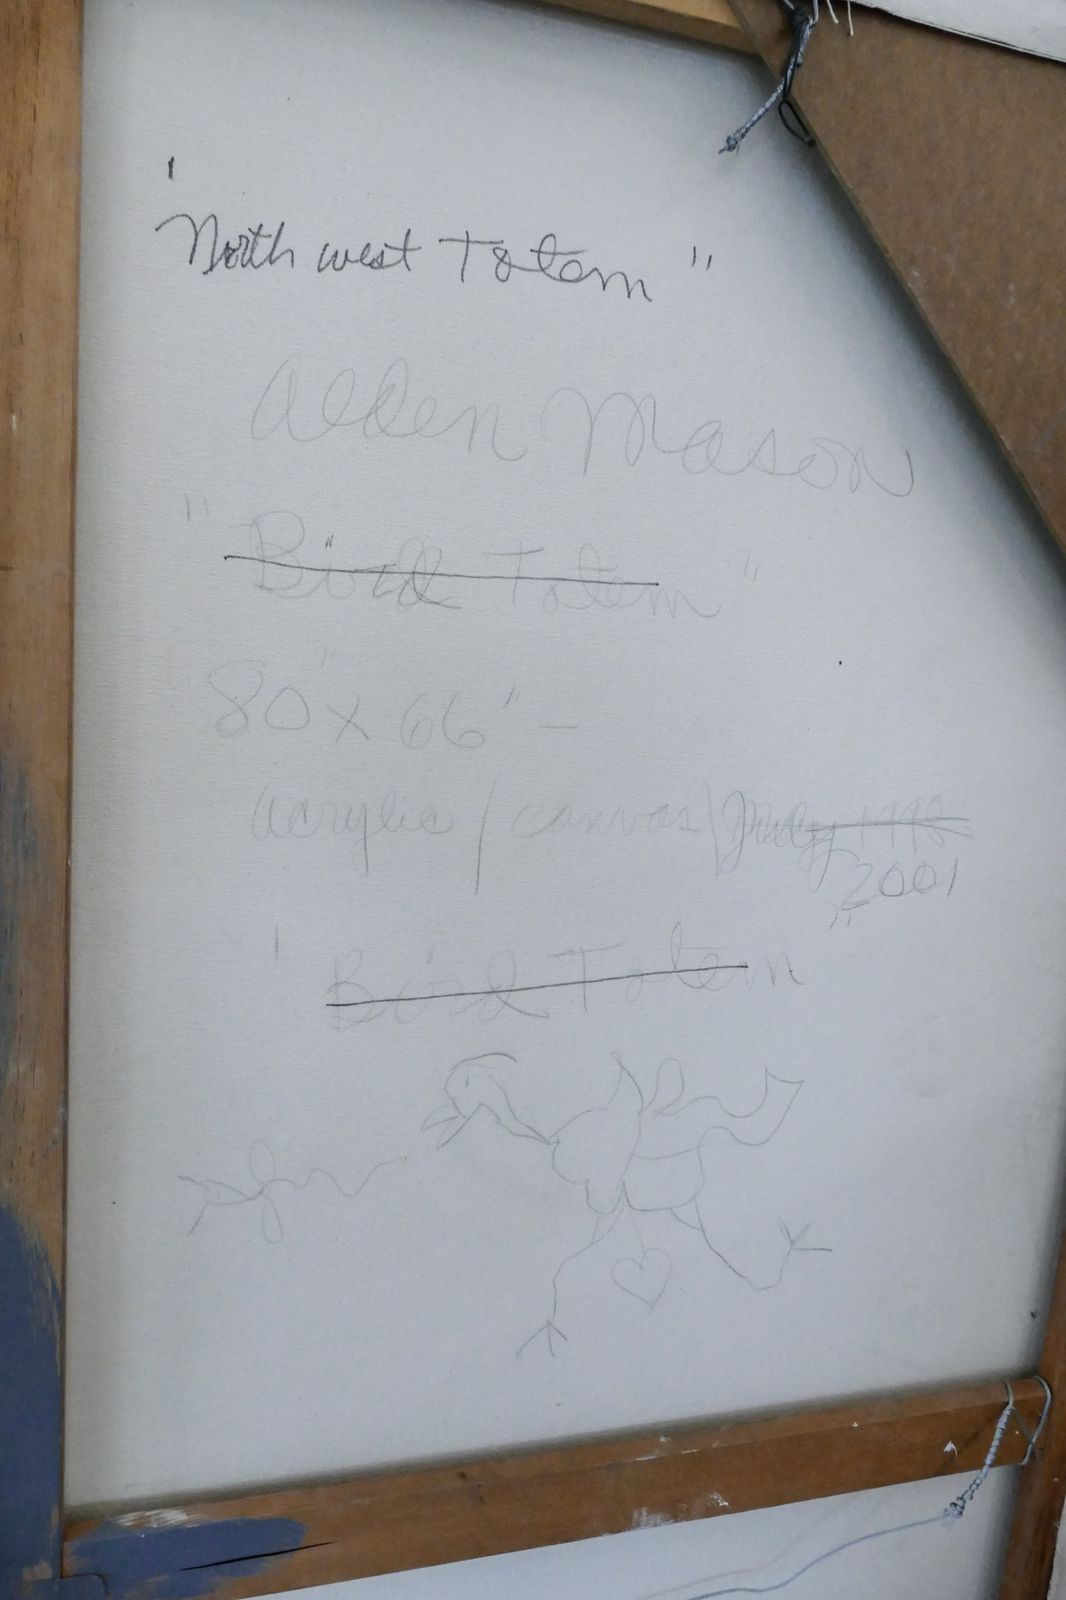 '
North west Totem "
Alden Mason
" Bird Totem "
80" x 66" -
acrylic / canvas / July 1998
2001
" Bird Totem "